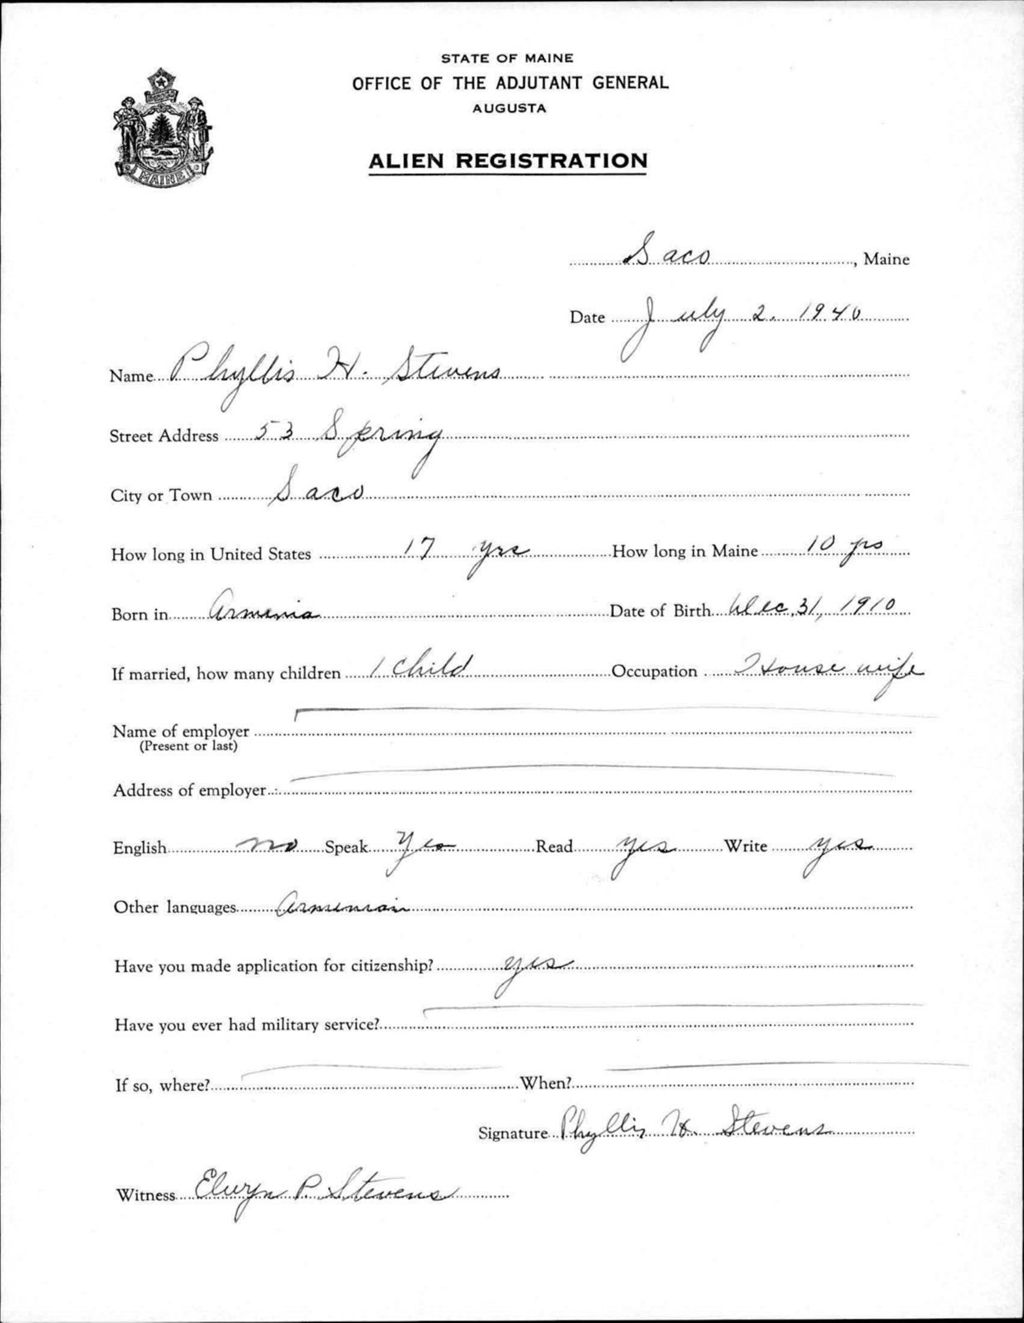 STATE OF MAINE
OFFICE OF THE ADJUTANT GENERAL
AUGUSTA
MAINE
ALIEN REGISTRATION
Saco, Maine
Date July 2. 1940
Name Phyllis H. Stevens
Street Address 53 Spring
City or Town Saco
How long in United States 17 yrs How long in Maine 10 yrs
Born in Armenia Date of Birth Dec, 31, 1910
If married, how many children 1 child Occupation House wife
Name of employer
(Present or last)
Address of employer
English no Speak Yes Read yes Write yes
Other languages Armenian
Have you made application for citizenship? yes
Have you ever had military service?
If so, where? When?
Signature Phyllis H. Stevens
Witness Elwyn P. Stevens